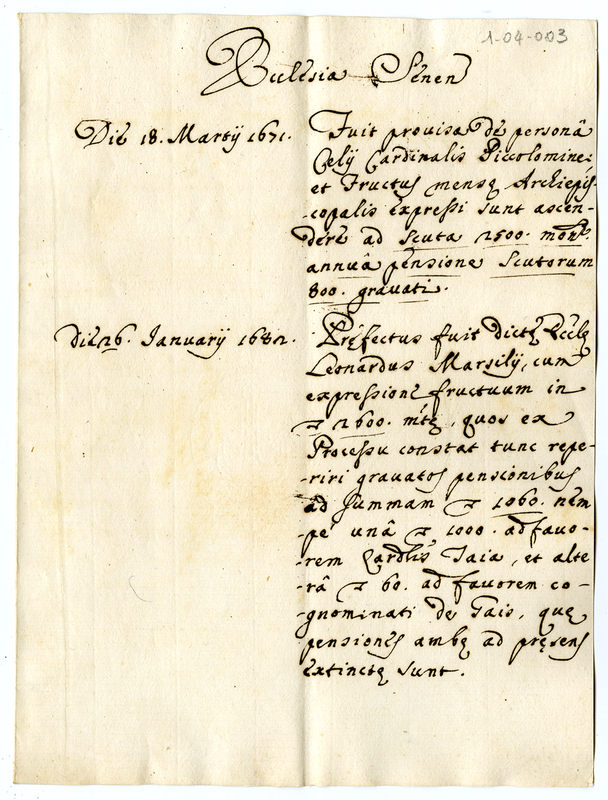 1-04-003
Ecclesia Senen
Die 18. Martij 1671.
Fuit provisa de personâ
Celij Cardinalis Piccolominei
et Fructus mensę Archiepis-
-copalis expressi sunt ascen-
dere ad Scuta 2500. monte
annuâ pensione Scutorum
800. gravati.
Die 26. January 1682.
Pręfectus fuit dictę Ecclę
Leonardus Marsilij, cum
expressione fructuum in
2600. mtę, quos ex
Processu constat tunc repe-
riri gravatos pensionibus
ad summam 1060. nem
-pe unâ 1000. ad favo-
-rem Cardlis Taia, et alte
-râ 60. ad favorem co-
-gnominati de Tais, quę
pensiones ambę ad pręsens
extinctę sunt.